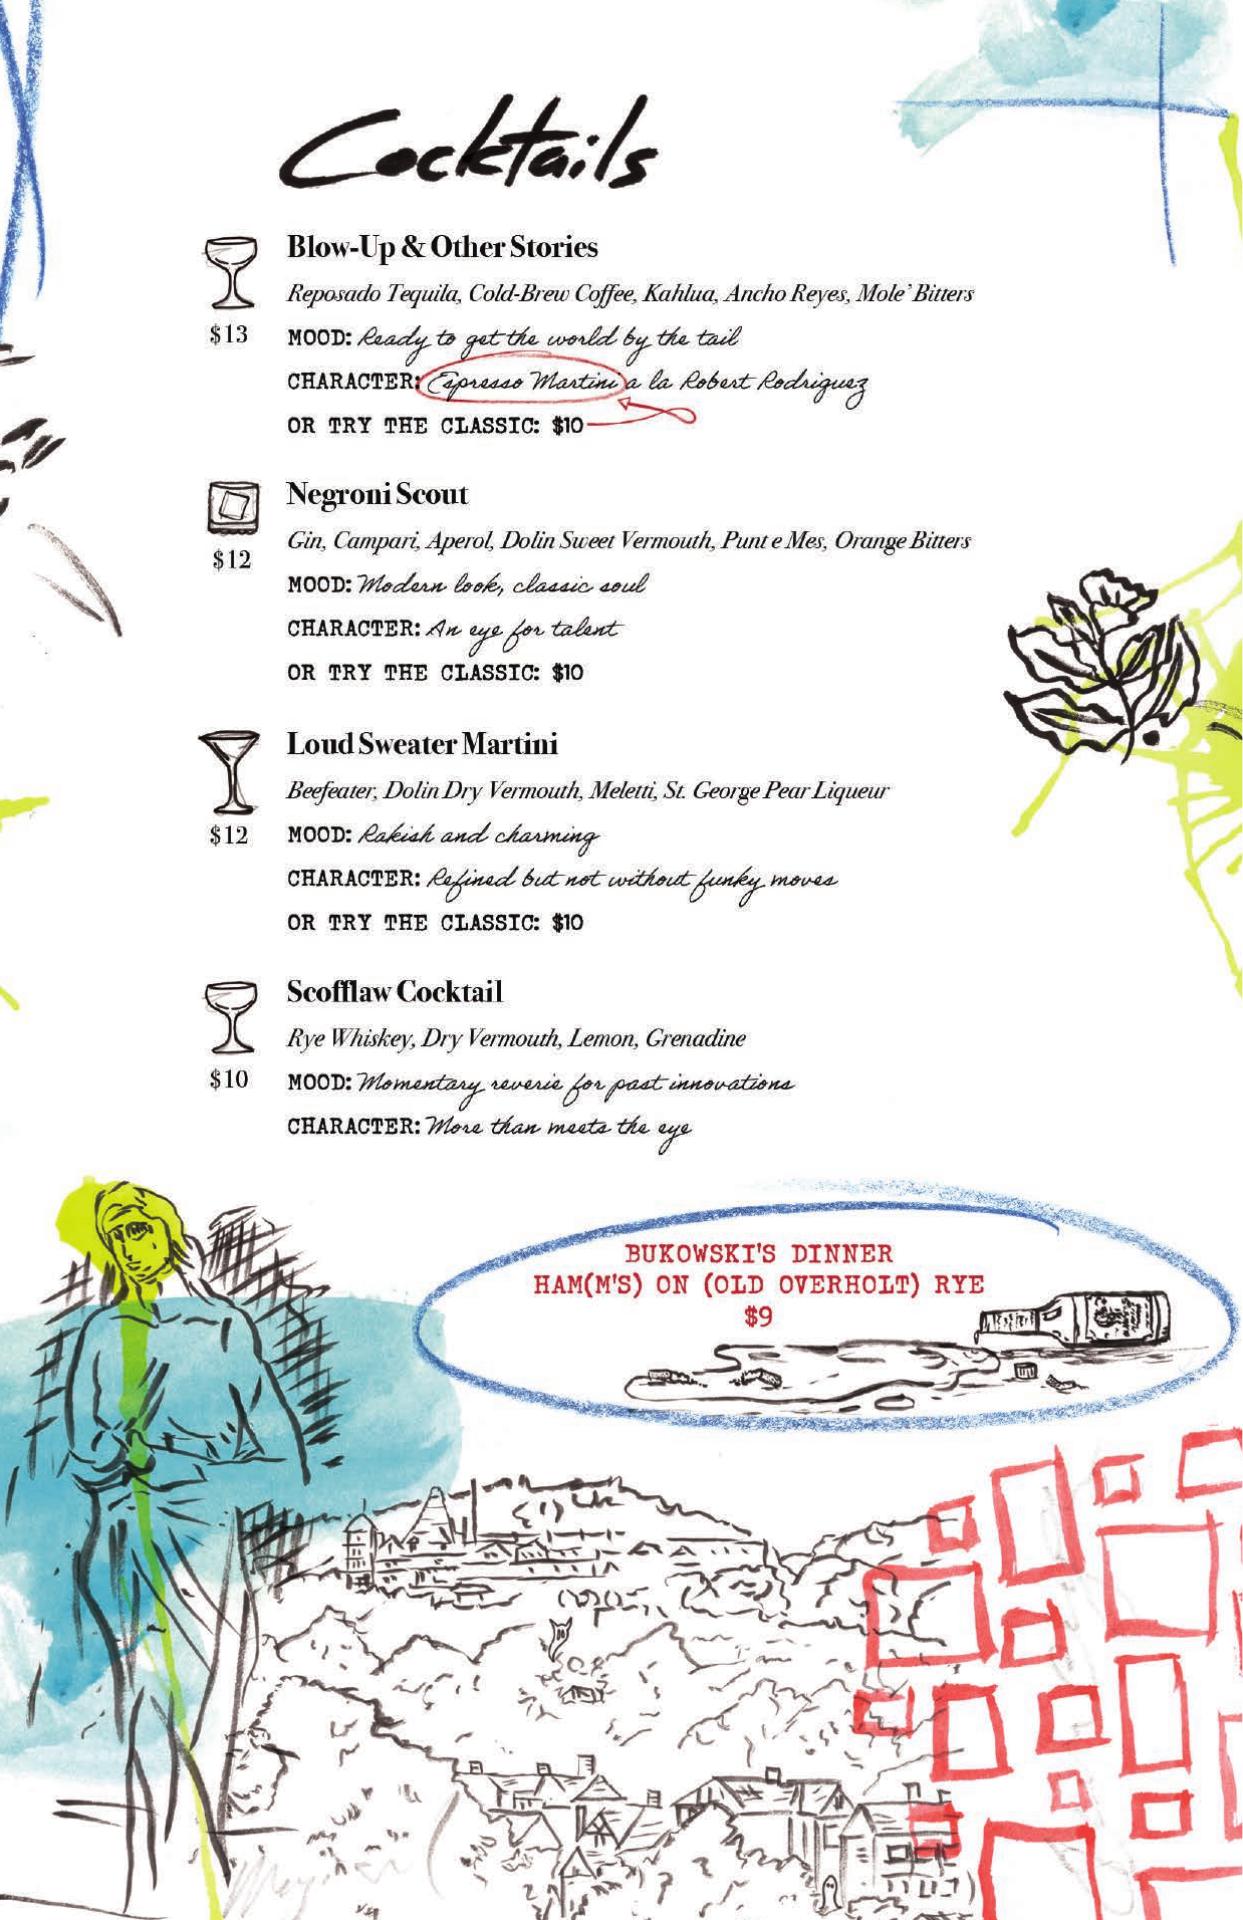 Cocktails
Blow-Up & Other Stories
Reposado Tequila, Cold-Brew Coffee, Kahlua, Ancho Reyes, Mole' Bitters
$13
MOOD: Ready to get the world by the tail
CHARACTER: Espresso Martini a la Robert Rodriguez
OR TRY THE CLASSIC: $10
Negroni Scout
Gin, Campari, Aperol, Dolin Sweet Vermouth, Punt e Mes, Orange Bitters
$12
MOOD: Modern look, classic soul
CHARACTER: An eye for talent
OR TRY THE CLASSIC: $10
Loud Sweater Martini
Beefeater, Dolin Dry Vermouth, Meletti, St. George Pear Liqueur
$12
MOOD: Rakish and charming
CHARACTER: Refined but not without funky moves
OR TRY THE CLASSIC: $10
Scofflaw Cocktail
Rye Whiskey, Dry Vermouth, Lemon, Grenadine
$10
MOOD: Momentary reverie for past innovations
CHARACTER: More than meets the eye
BUKOWSKI'S DINNER
HAM(M'S) ON (OLD OVERHOLT) RYE
$9